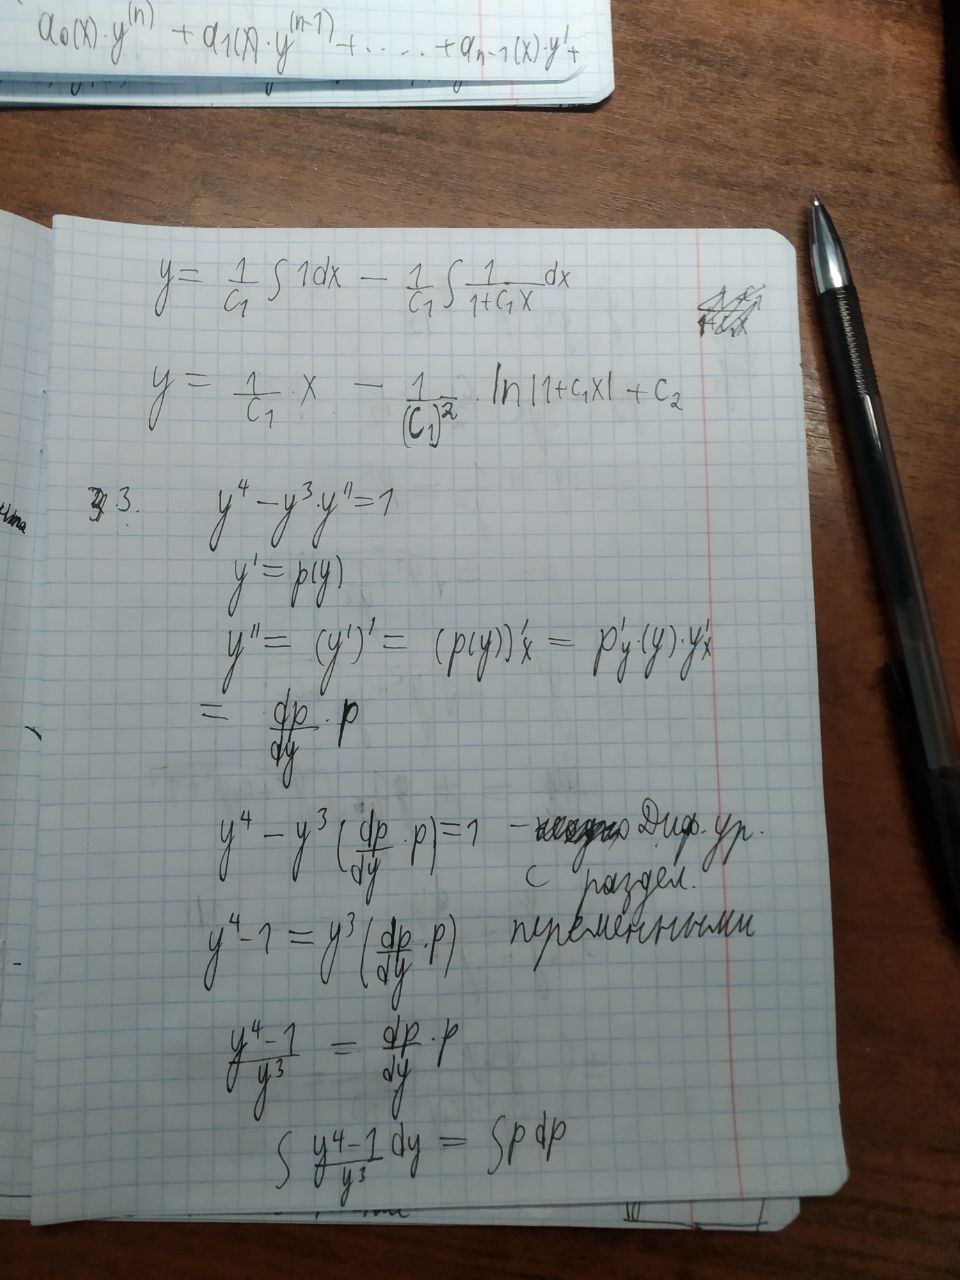 a₀(x)·y⁽ⁿ⁾ + a₁(x)·y⁽ⁿ⁻¹⁾ + ..... + aₙ₋₁(x)·y' +
y = 1/C₁ ∫ 1dx − 1/C₁ ∫ 1/(1+C₁x) dx
y = 1/C₁ · x − 1/(C₁)² · ln|1+C₁x| + C₂
3. y⁴ − y³·y'' = 1
y' = p(y)
y'' = (y')' = (p(y))'x = p'y·(y)·y'x
= dp/dy · p
y⁴ − y³(dp/dy · p) = 1 – Диф. ур.
с раздел.
y⁴ − 1 = y³(dp/dy · p) переменными
(y⁴ − 1)/y³ = dp/dy · p
∫ (y⁴ − 1)/y³ dy = ∫ p dp